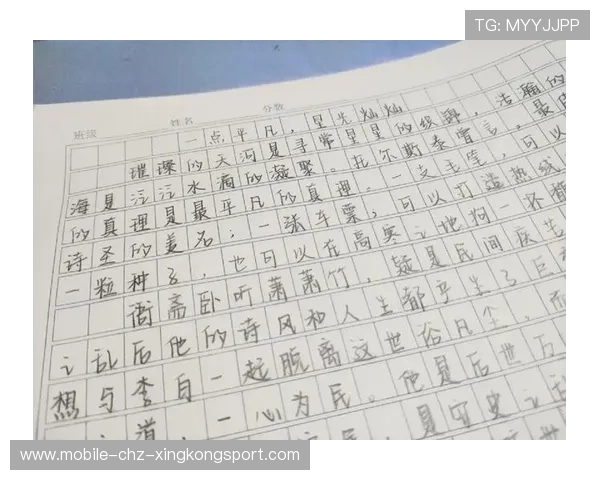 TG: MYYJJPP
班级 姓名 分数
一点平凡，星光灿灿
璀璨的天河是寻常星星的积蹄，浩瀚的
海是汪汪水滴的凝聚。托尔斯泰曾言，最伟
的真理是最平凡的真理。一支毛笔，可以
诗圣的美名；一张车票，可以打造热线
一粒种子，也可以在高寒之地
衙斋卧听萧萧竹，疑是民间疾苦
之乱后他的诗风和人生都产生了巨
想与李白一起脱离这世俗凡尘，而
之道，一心为民。他是后世万
是守史之
www-mobile-chz-xingkongsport.com/